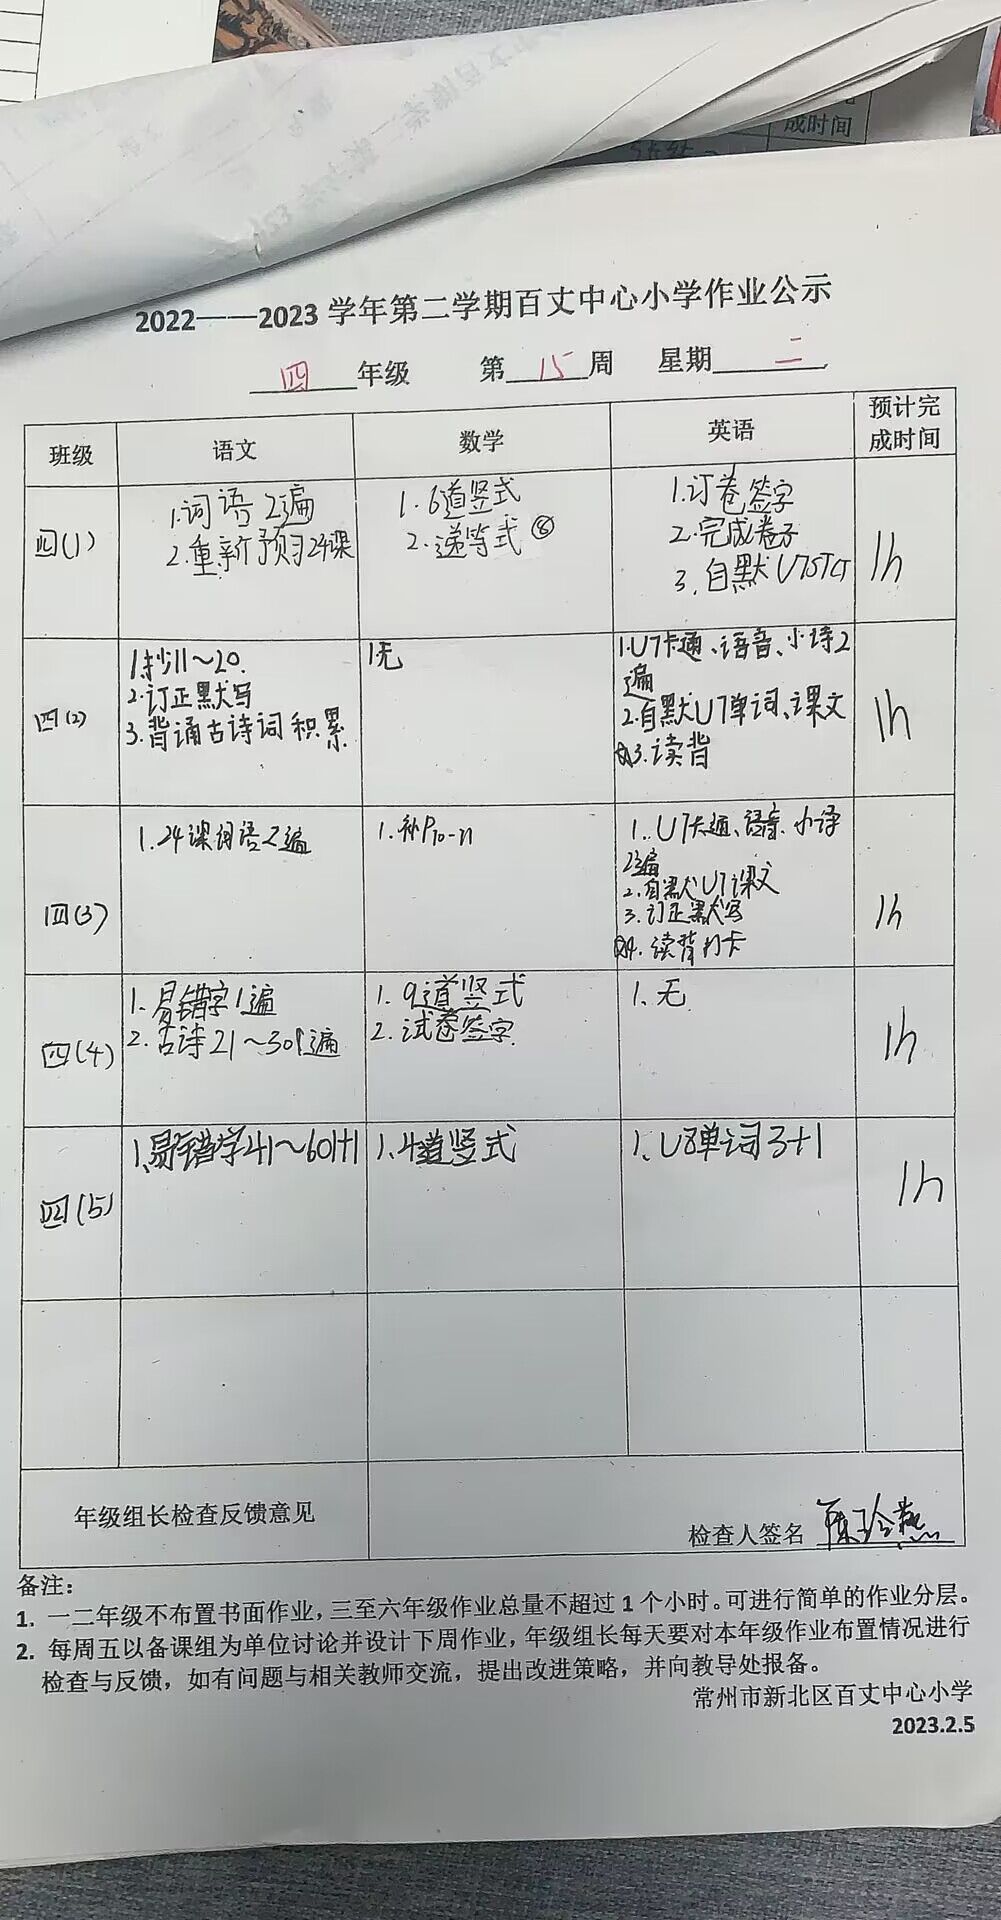 成时间
2022——2023 学年第二学期百丈中心小学作业公示
四 年级 第 15 周 星期 二
班级 语文 数学 英语 预计完成时间
四(1)
1.词语2遍
2.重新预习24课
1.6道竖式
2.递等式⑧
1.订卷签字
2.完成卷子
3.自默U7ST
1h
四(2)
1.抄11~20.
2.订正默写
3.背诵古诗词积累
1.无
1.U7卡通、语音、小诗2
遍
2.自默U7单词、课文
3.读背
1h
四(3)
1.24课词语2遍
1.补P70-71
1.U7卡通、语音、小诗
2遍
2.自默U7课文
3.订正默写
4.读背打卡
1h
四(4)
1.易错字1遍
2.古诗21~30 1遍
1.9道竖式
2.试卷签字.
1.无
1h
四(5)
1.易错字41~60 1+1
1.4道竖式
1.U8单词3+1
1h
年级组长检查反馈意见
检查人签名
备注:
1. 一二年级不布置书面作业,三至六年级作业总量不超过 1 个小时。可进行简单的作业分层。
2. 每周五以备课组为单位讨论并设计下周作业,年级组长每天要对本年级作业布置情况进行
检查与反馈,如有问题与相关教师交流,提出改进策略,并向教导处报备。
常州市新北区百丈中心小学
2023.2.5